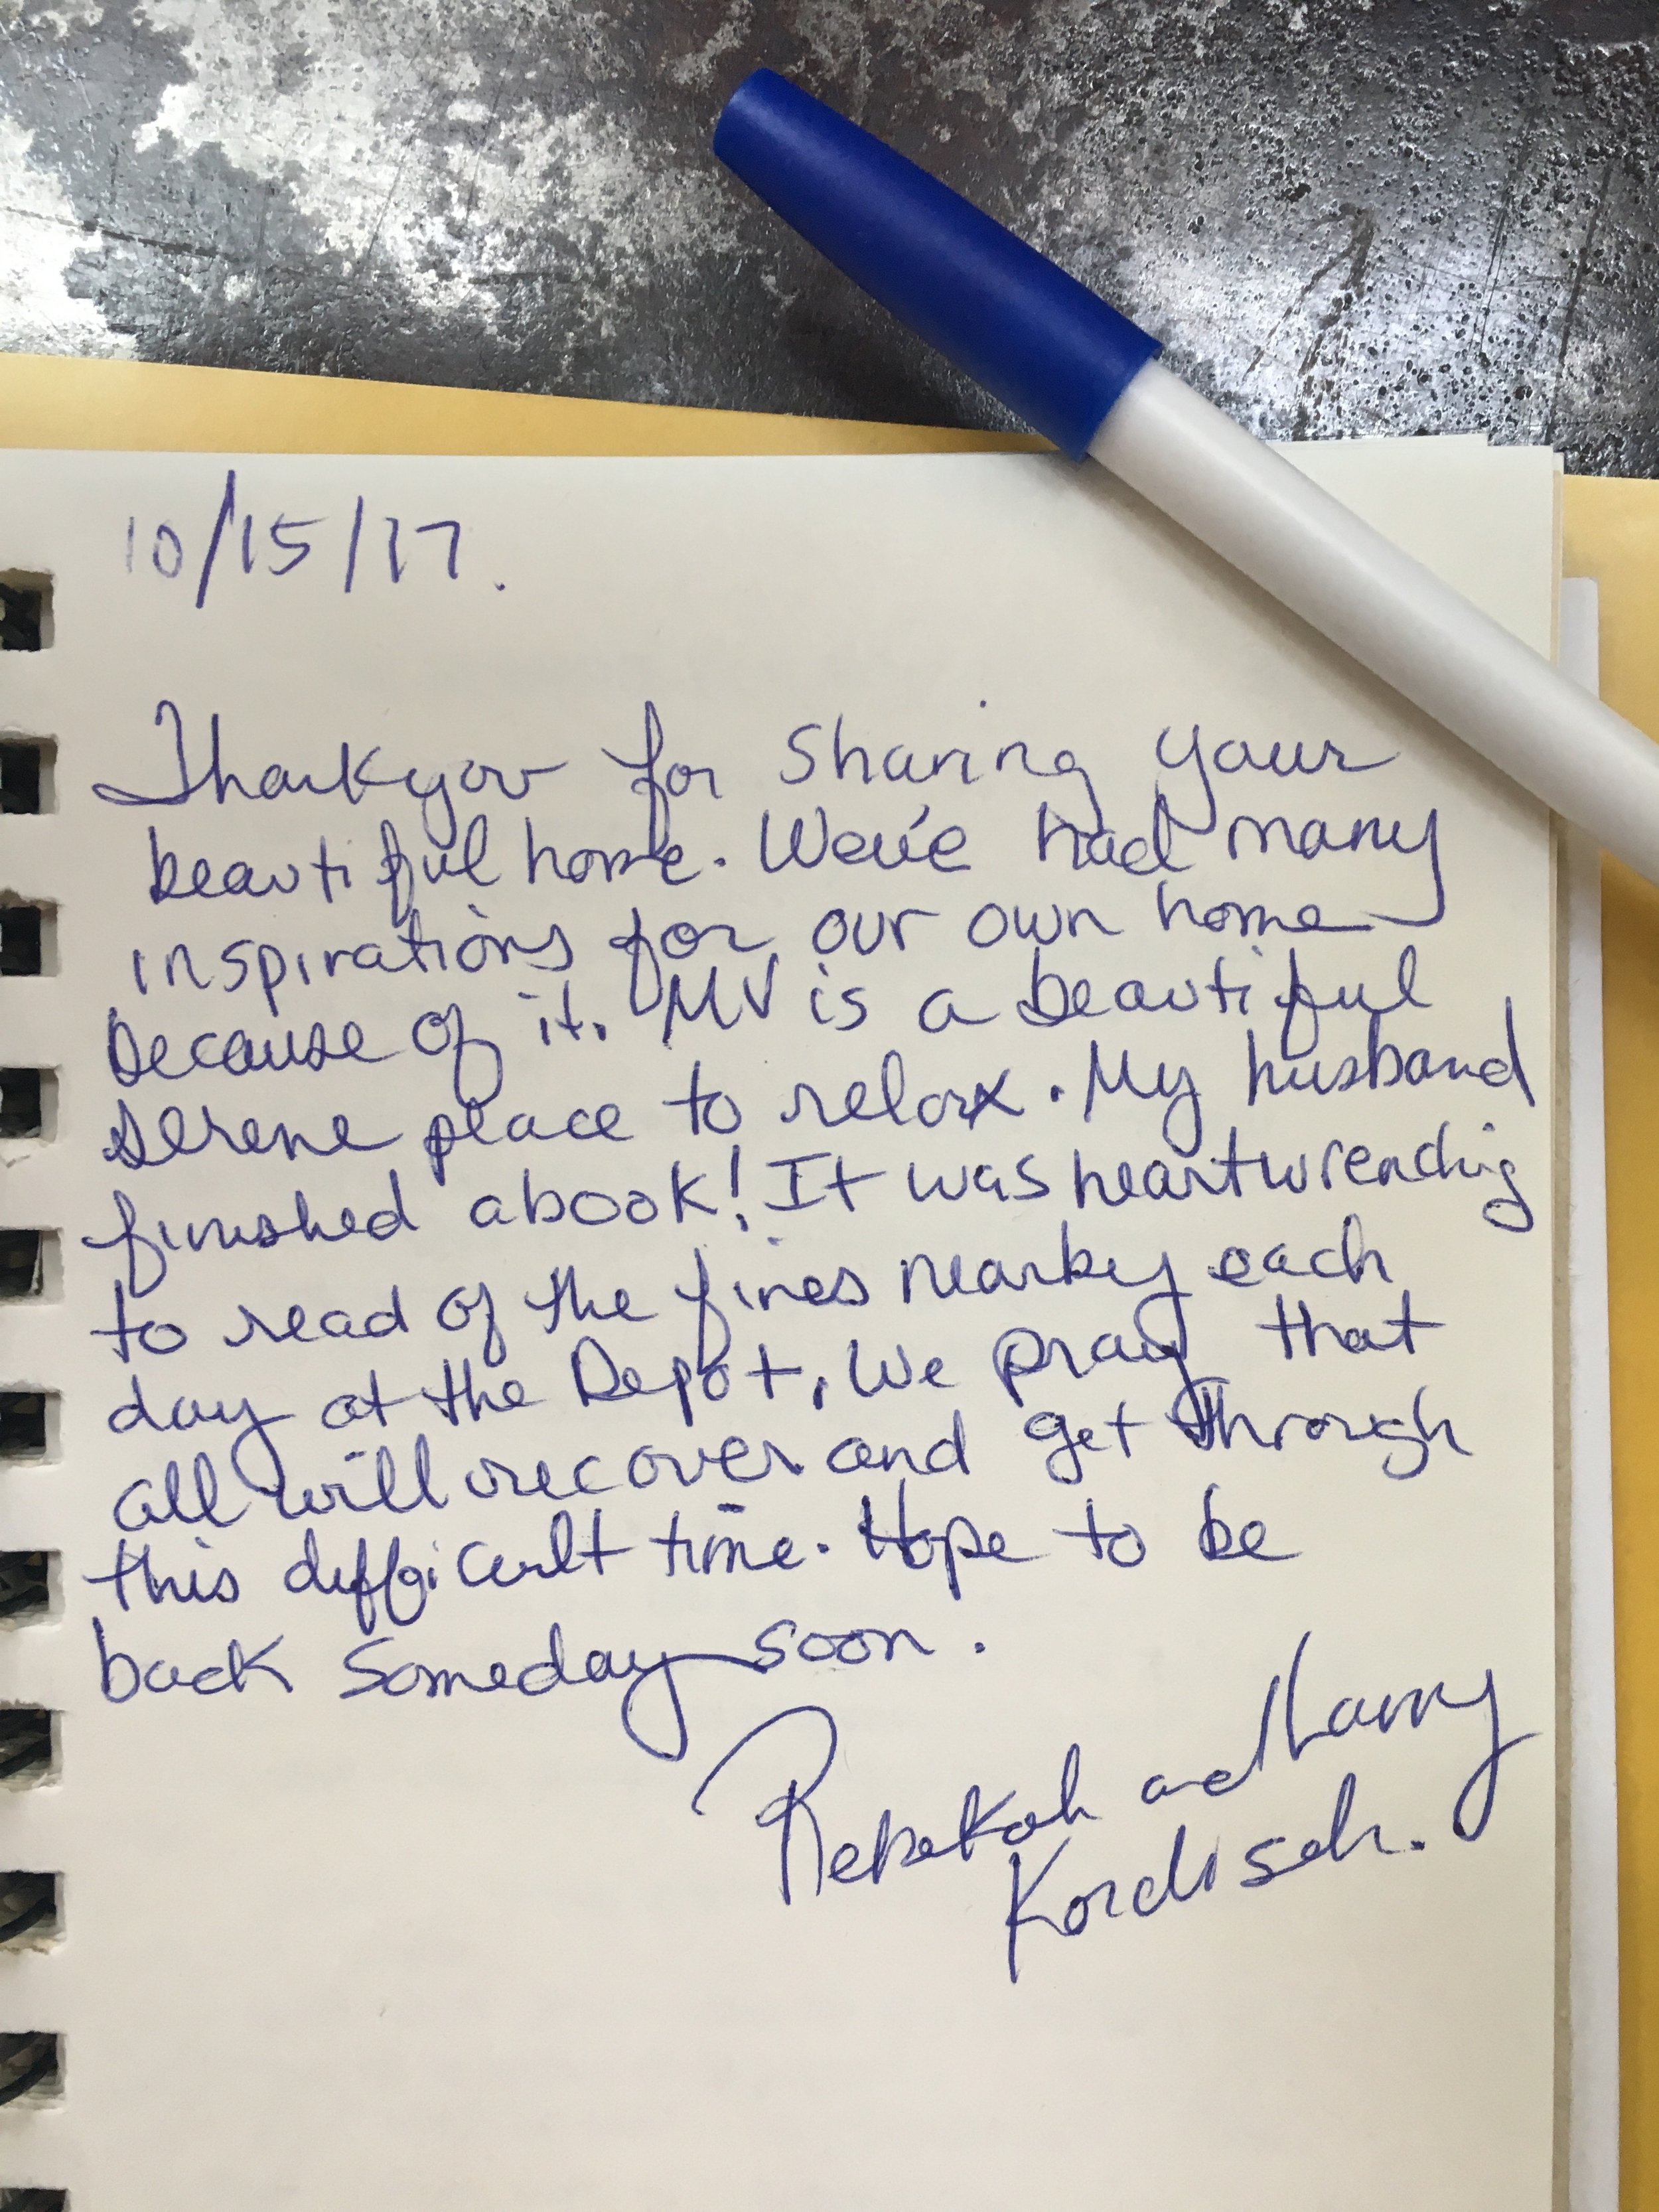 10/15/17.
Thankyou for sharing your
beautiful home. We've had many
inspirations for our own home
because of it. MV is a beautiful
serene place to relax. My husband
finished a book! It was heartwrending
to read of the fires nearby each
day at the Depot. We pray that
all will recover and get through
this difficult time. Hope to be
back someday soon.
Rebekah and Harry
Kordisch.